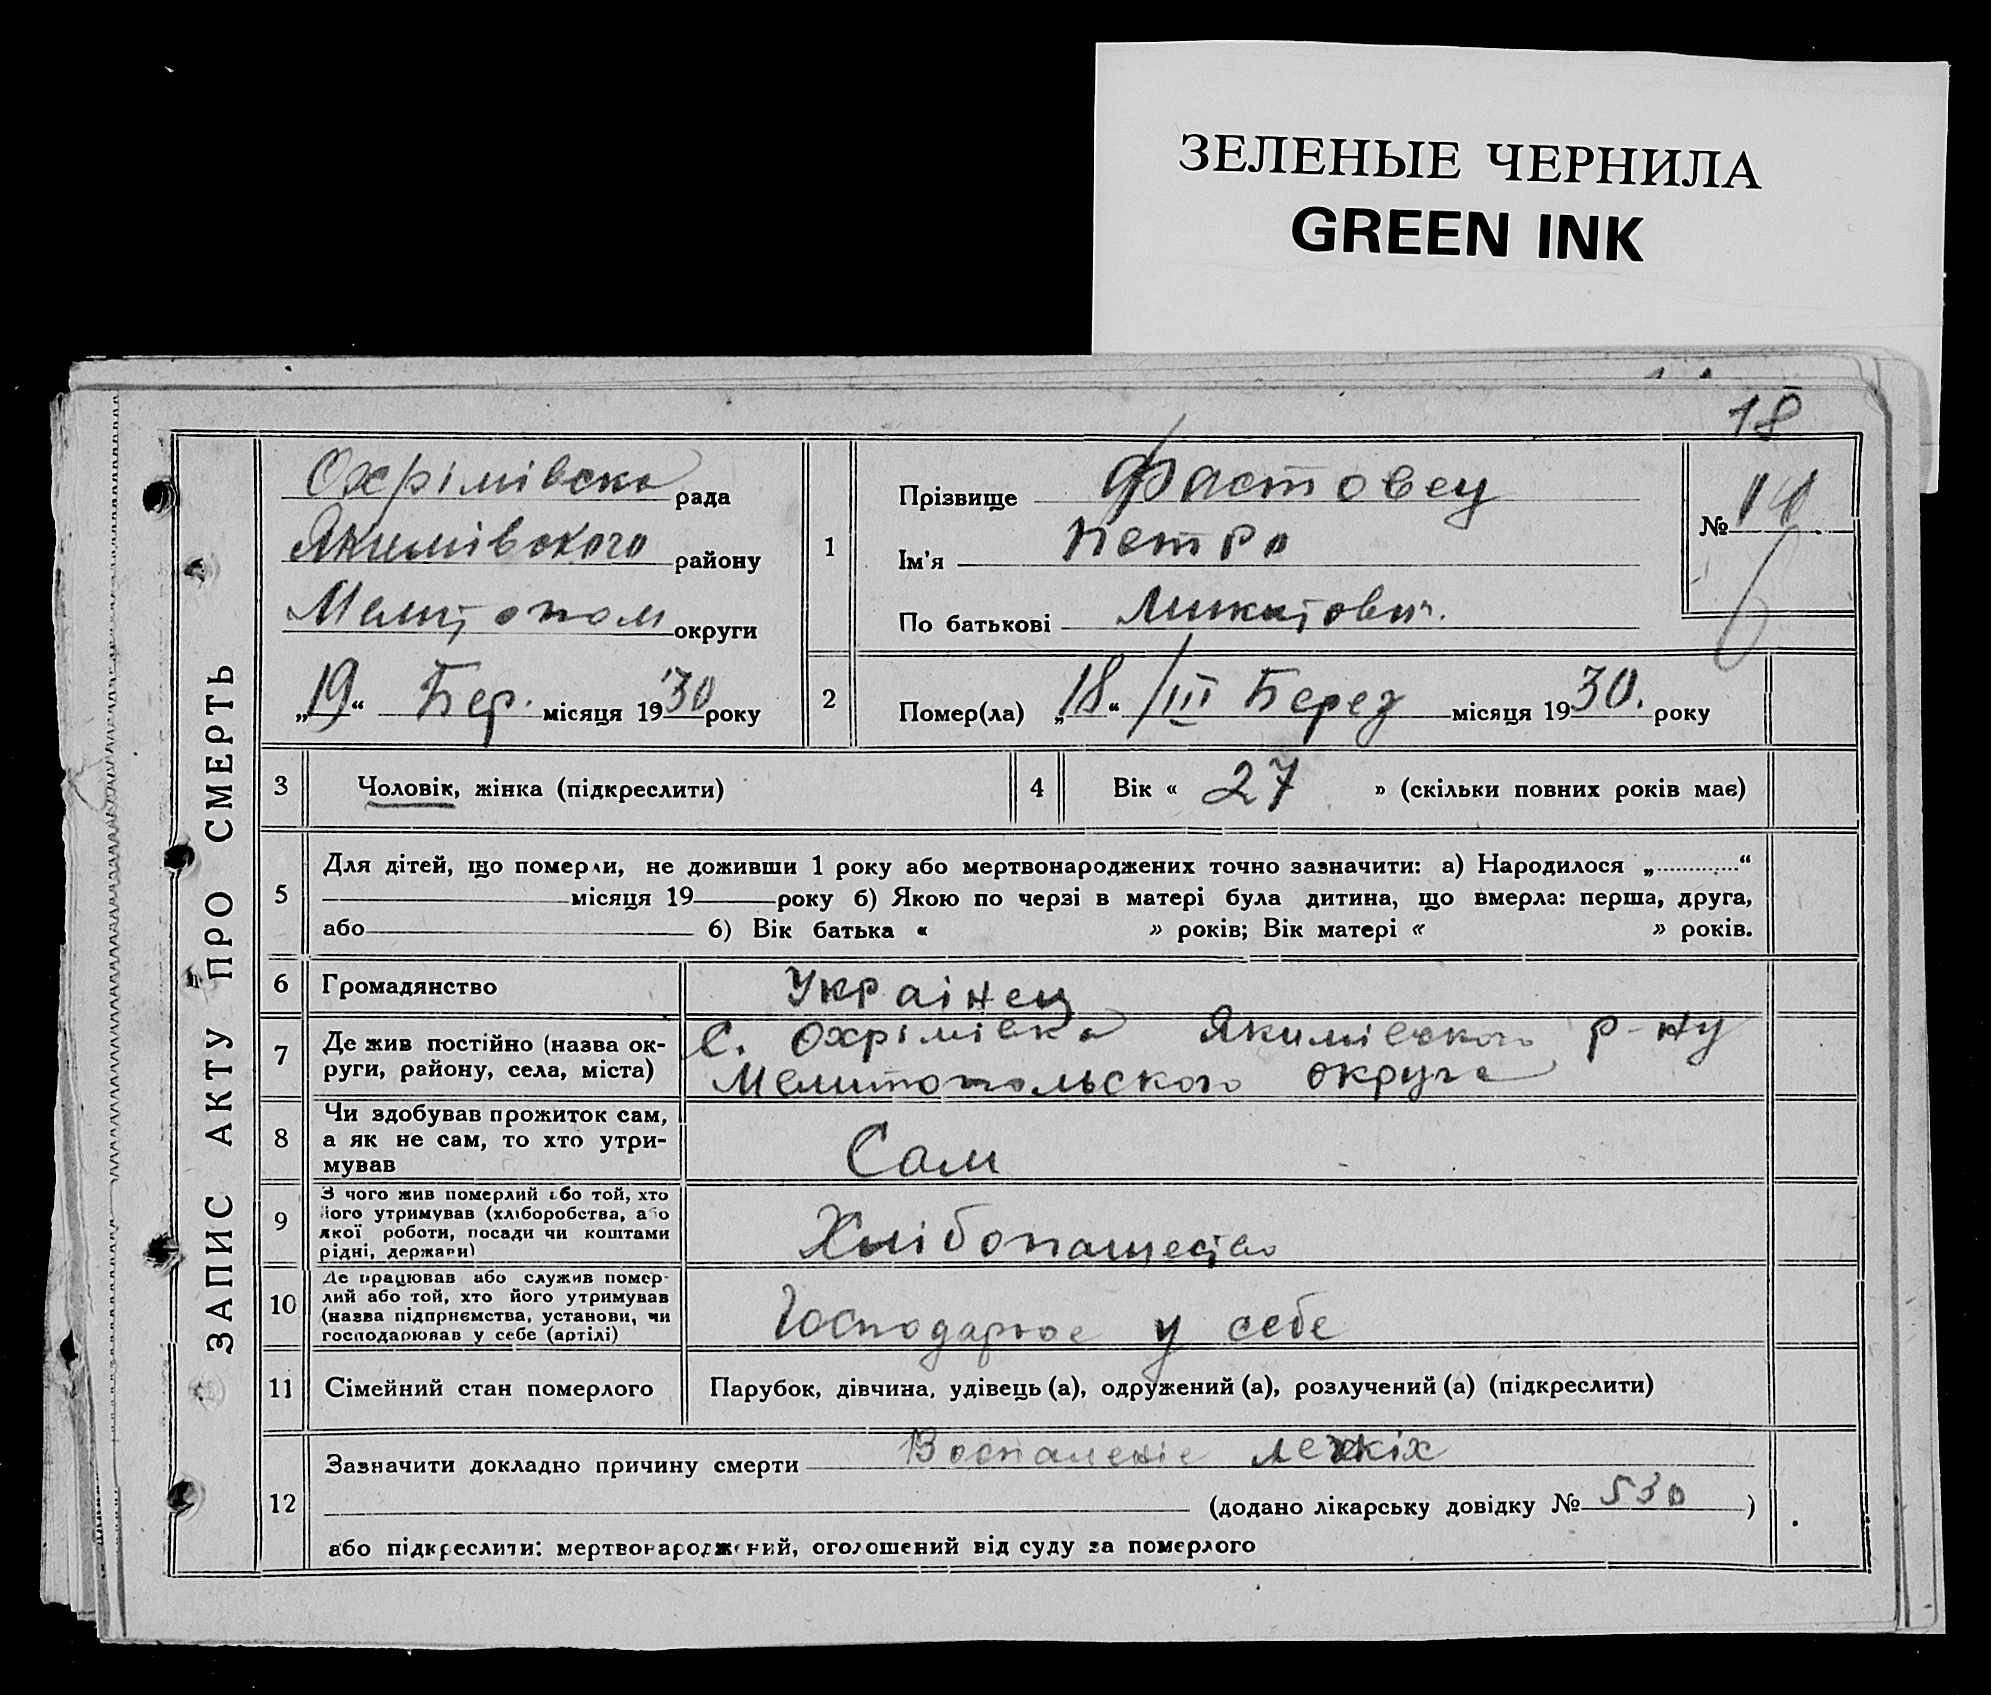 ЗЕЛЕНЫЕ ЧЕРНИЛА
GREEN INK
18
ЗАПИС АКТУ ПРО СМЕРТЬ
Охрімівска рада
Якимівского району
Мелитопол округи
„19“ Бер. місяця 1930 року
1
Прізвище Фастовец
Ім'я Петро
По батькові Микитович.
№ 14
2
Помер(ла) „18“ /III Берез місяця 1930. року
3
Чоловік, жінка (підкреслити)
4
Вік « 27 » (скільки повних років має)
5
Для дітей, що померли, не доживши 1 року або мертвонароджених точно зазначити: а) Народилося „ “
місяця 19 року б) Якою по черзі в матері була дитина, що вмерла: перша, друга,
або б) Вік батька « » років; Вік матері « » років.
6
Громадянство
Украінец
7
Де жив постійно (назва ок-
руги, району, села, міста)
С. Охрімівка Якимівского р-ну
Мелитопольского округа
8
Чи здобував прожиток сам,
а як не сам, то хто утри-
мував
Сам
9
З чого жив померлий або той, хто
його утримував (хліборобства, або
якої роботи, посади чи коштами
рідні, держави)
Хлібопашество
10
Де працював або служив помер-
лий або той, хто його утримував
(назва підприємства, установи, чи
господарював у себе (артілі)
Господарює у себе
11
Сімейний стан померлого
Парубок, дівчина, удівець (а), одружений (а), розлучений (а) (підкреслити)
12
Зазначити докладно причину смерти Воспаленіе легкіх
(додано лікарську довідку № 530 )
або підкреслити: мертвонароджений, оголошений від суду за померлого